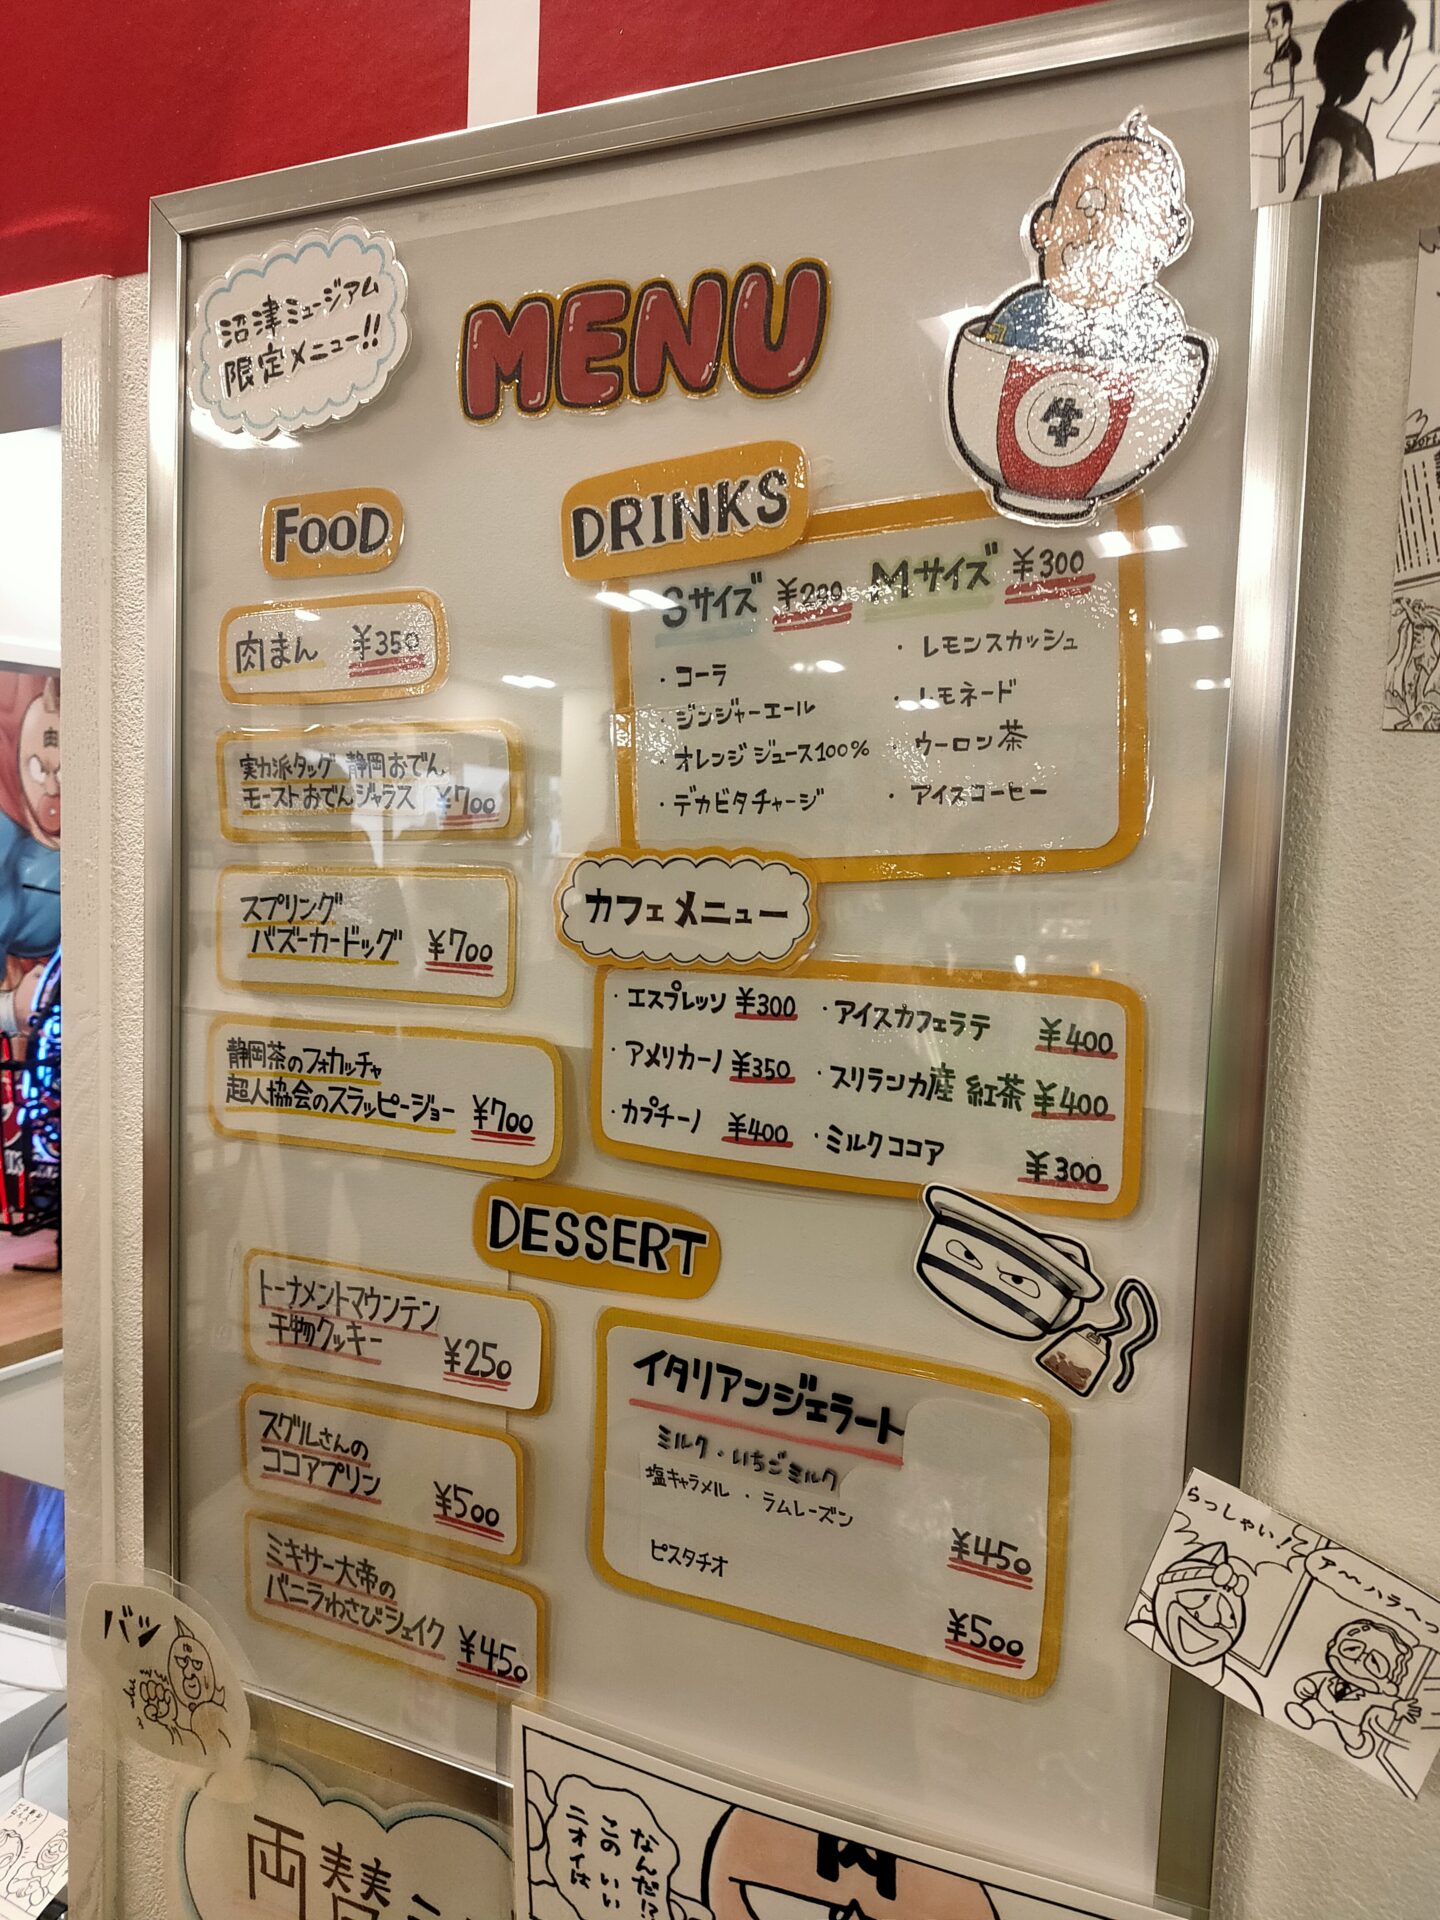 沼津ミュージアム
限定メニュー!!
MENU
牛
FOOD
肉まん ¥350
実力派タッグ 静岡おでん
モーストおでんジャラス ¥700
スプリング
バズーカードッグ ¥700
静岡茶のフォカッチャ
超人協会のスラッピージョー ¥700
DRINKS
Sサイズ ¥200 Mサイズ ¥300
・コーラ
・ジンジャーエール
・オレンジジュース100%
・デカビタチャージ
・レモンスカッシュ
・レモネード
・ウーロン茶
・アイスコーヒー
カフェメニュー
・エスプレッソ ¥300
・アメリカーノ ¥350
・カプチーノ ¥400
・アイスカフェラテ ¥400
・スリランカ産 紅茶 ¥400
・ミルクココア ¥300
DESSERT
トーナメントマウンテン
干物クッキー ¥250
スグルさんの
ココアプリン ¥500
ミキサー大帝の
バニラわさびシェイク ¥450
イタリアンジェラート
ミルク・いちごミルク
塩キャラメル ・ ラムレーズン
¥450
ピスタチオ
¥500
バッ
らっしゃい!
ア〜ハラヘっ
両替
なんだ!?
このいい
ニオイは
肉